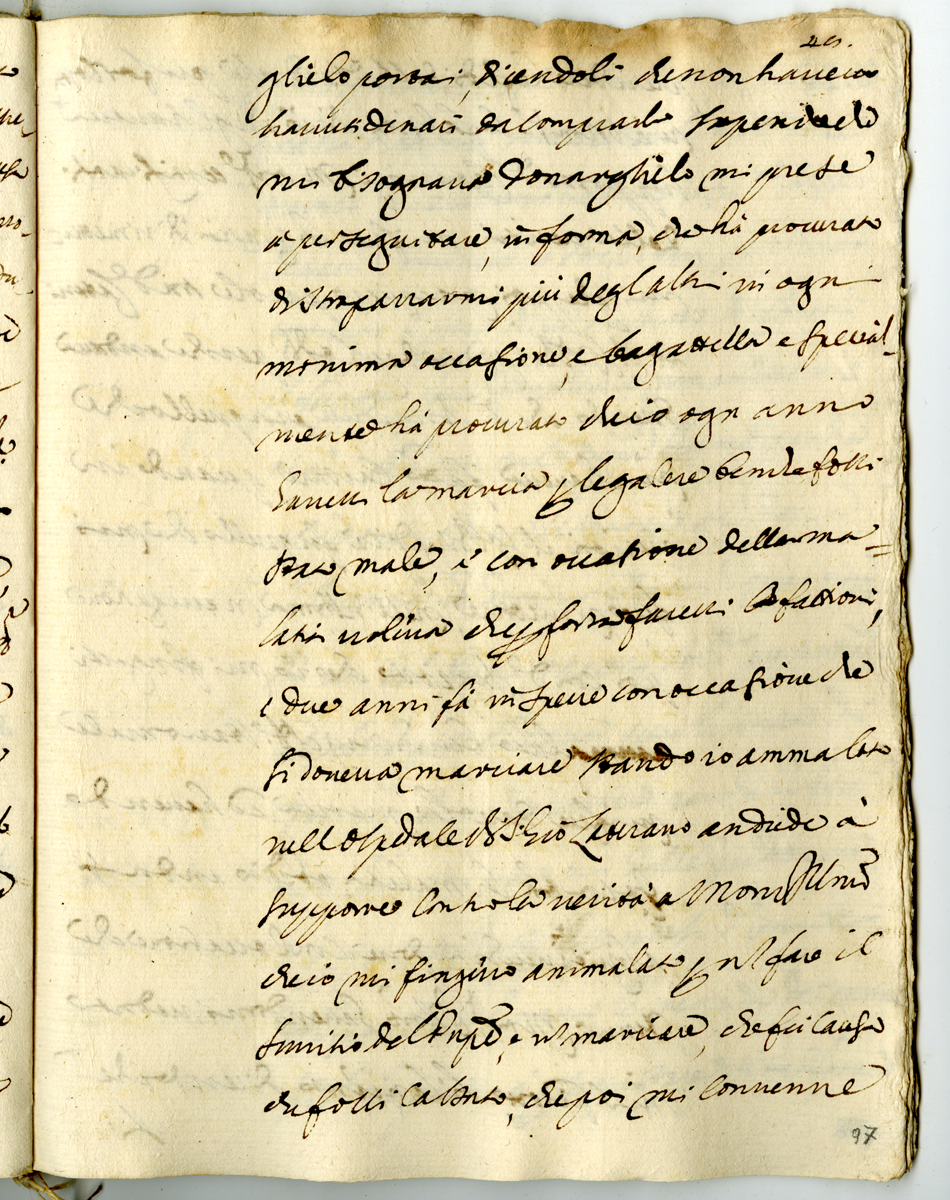 49.
glielo portai, dicendoli che non havevo
havuti denari da comprarlo
mi bisognava donarglielo mi prese
a perseguitare, in forma, che hà procurato
di strapazzarmi più degl'altri in ogni
minima occasione, e bagattella e special-
mente hà procurato che io ogn anno
facessi la marcia p legalere benche fossi
stato male, e con occasione della ma=
latia voleva che p forza facessi le fattioni,
e due anni fà in specie con occasione che
si doveva marciare stando io ammalato
nell Ospedale di S. Gio Laterano andiede à
supporre contro la verità a Mons Ill.mo
che io mi fingevo ammalato p nō fare il
servitio del Prnpe, e nō marciare, che fù causa
che fossi cassato, che poi mi convenne
97